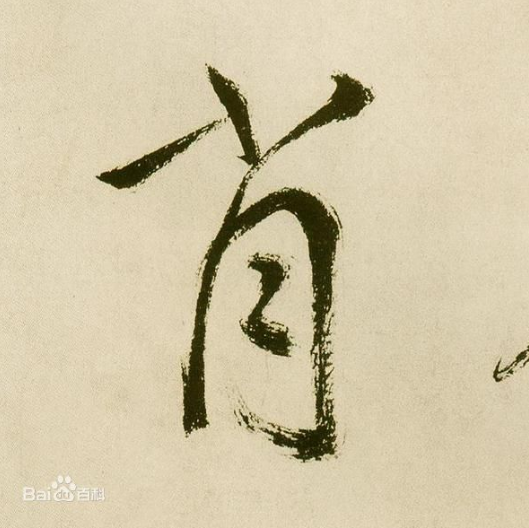 肖
Bai百科